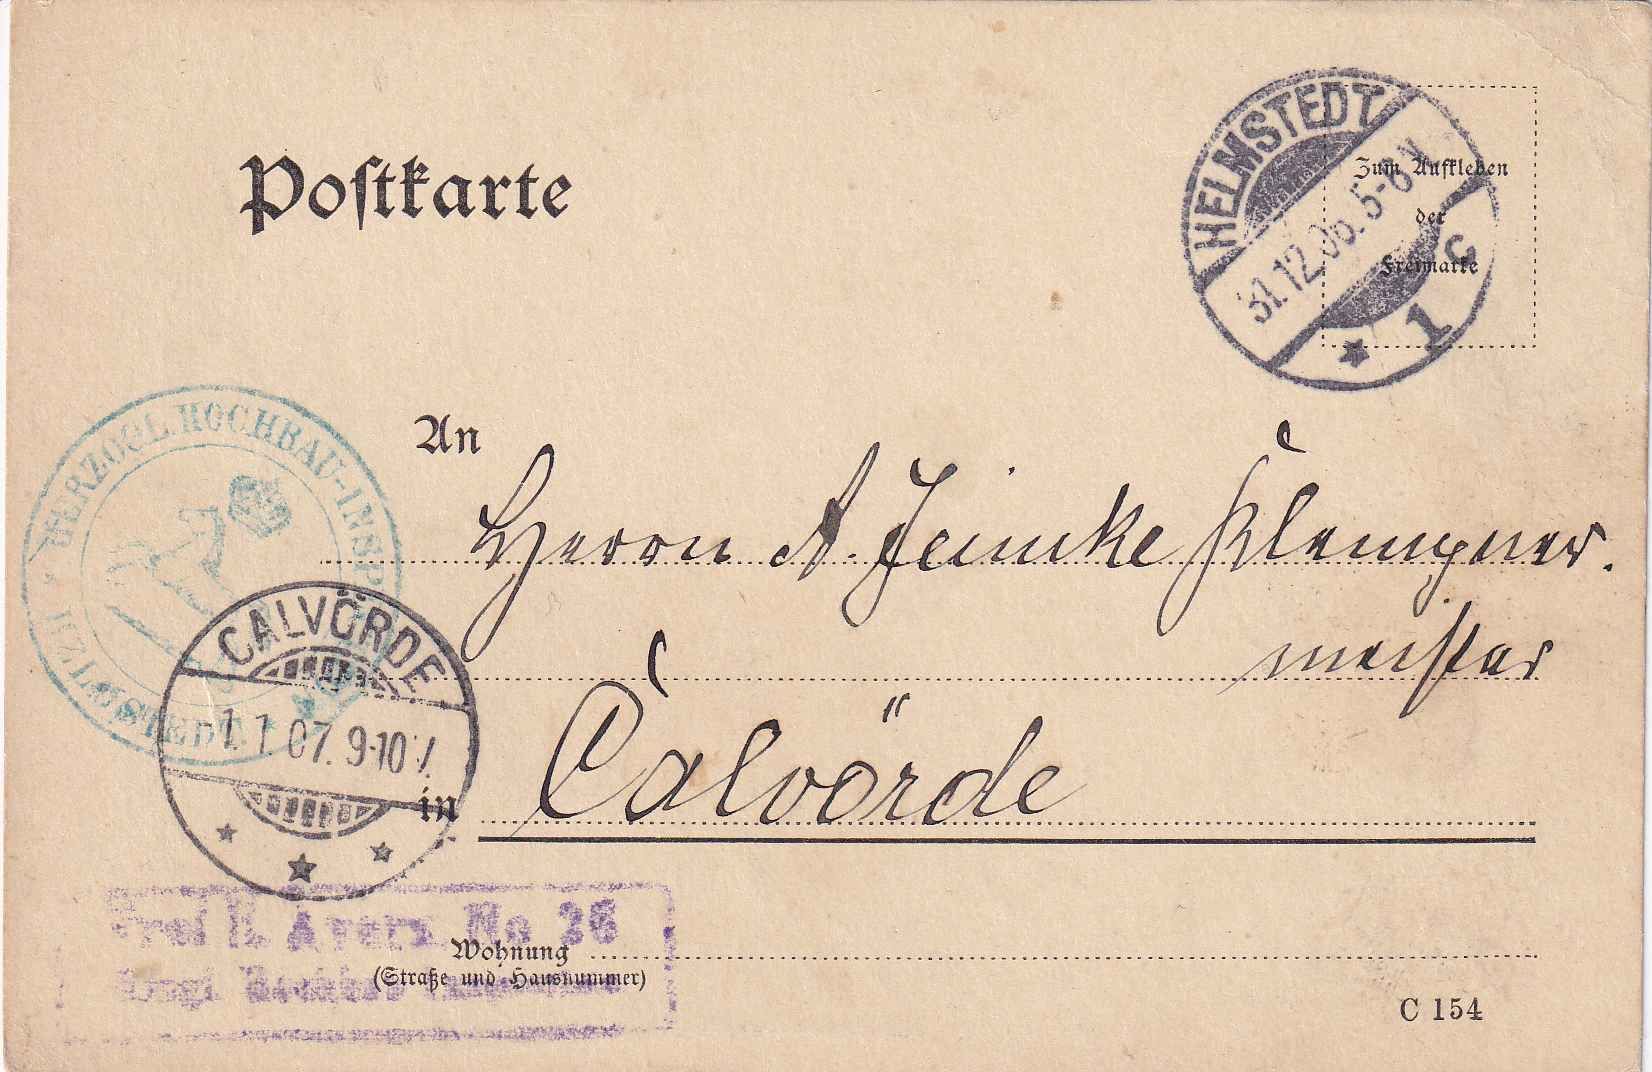 Poſtkarte
HELMSTEDT
31.12.06. 5-6N.
* 1 c
Zum Aufkleben
der
Freimarke
HERZOGL. HOCHBAU-INSP.
HELMSTEDT
An
Herrn A. Heinecke Klempner.
meister
CALVÖRDE
1.1.07. 9-10V.
in
Calvörde
Frei lt. Avers. No 26
Wohnung
(Straße und Hausnummer)
C 154